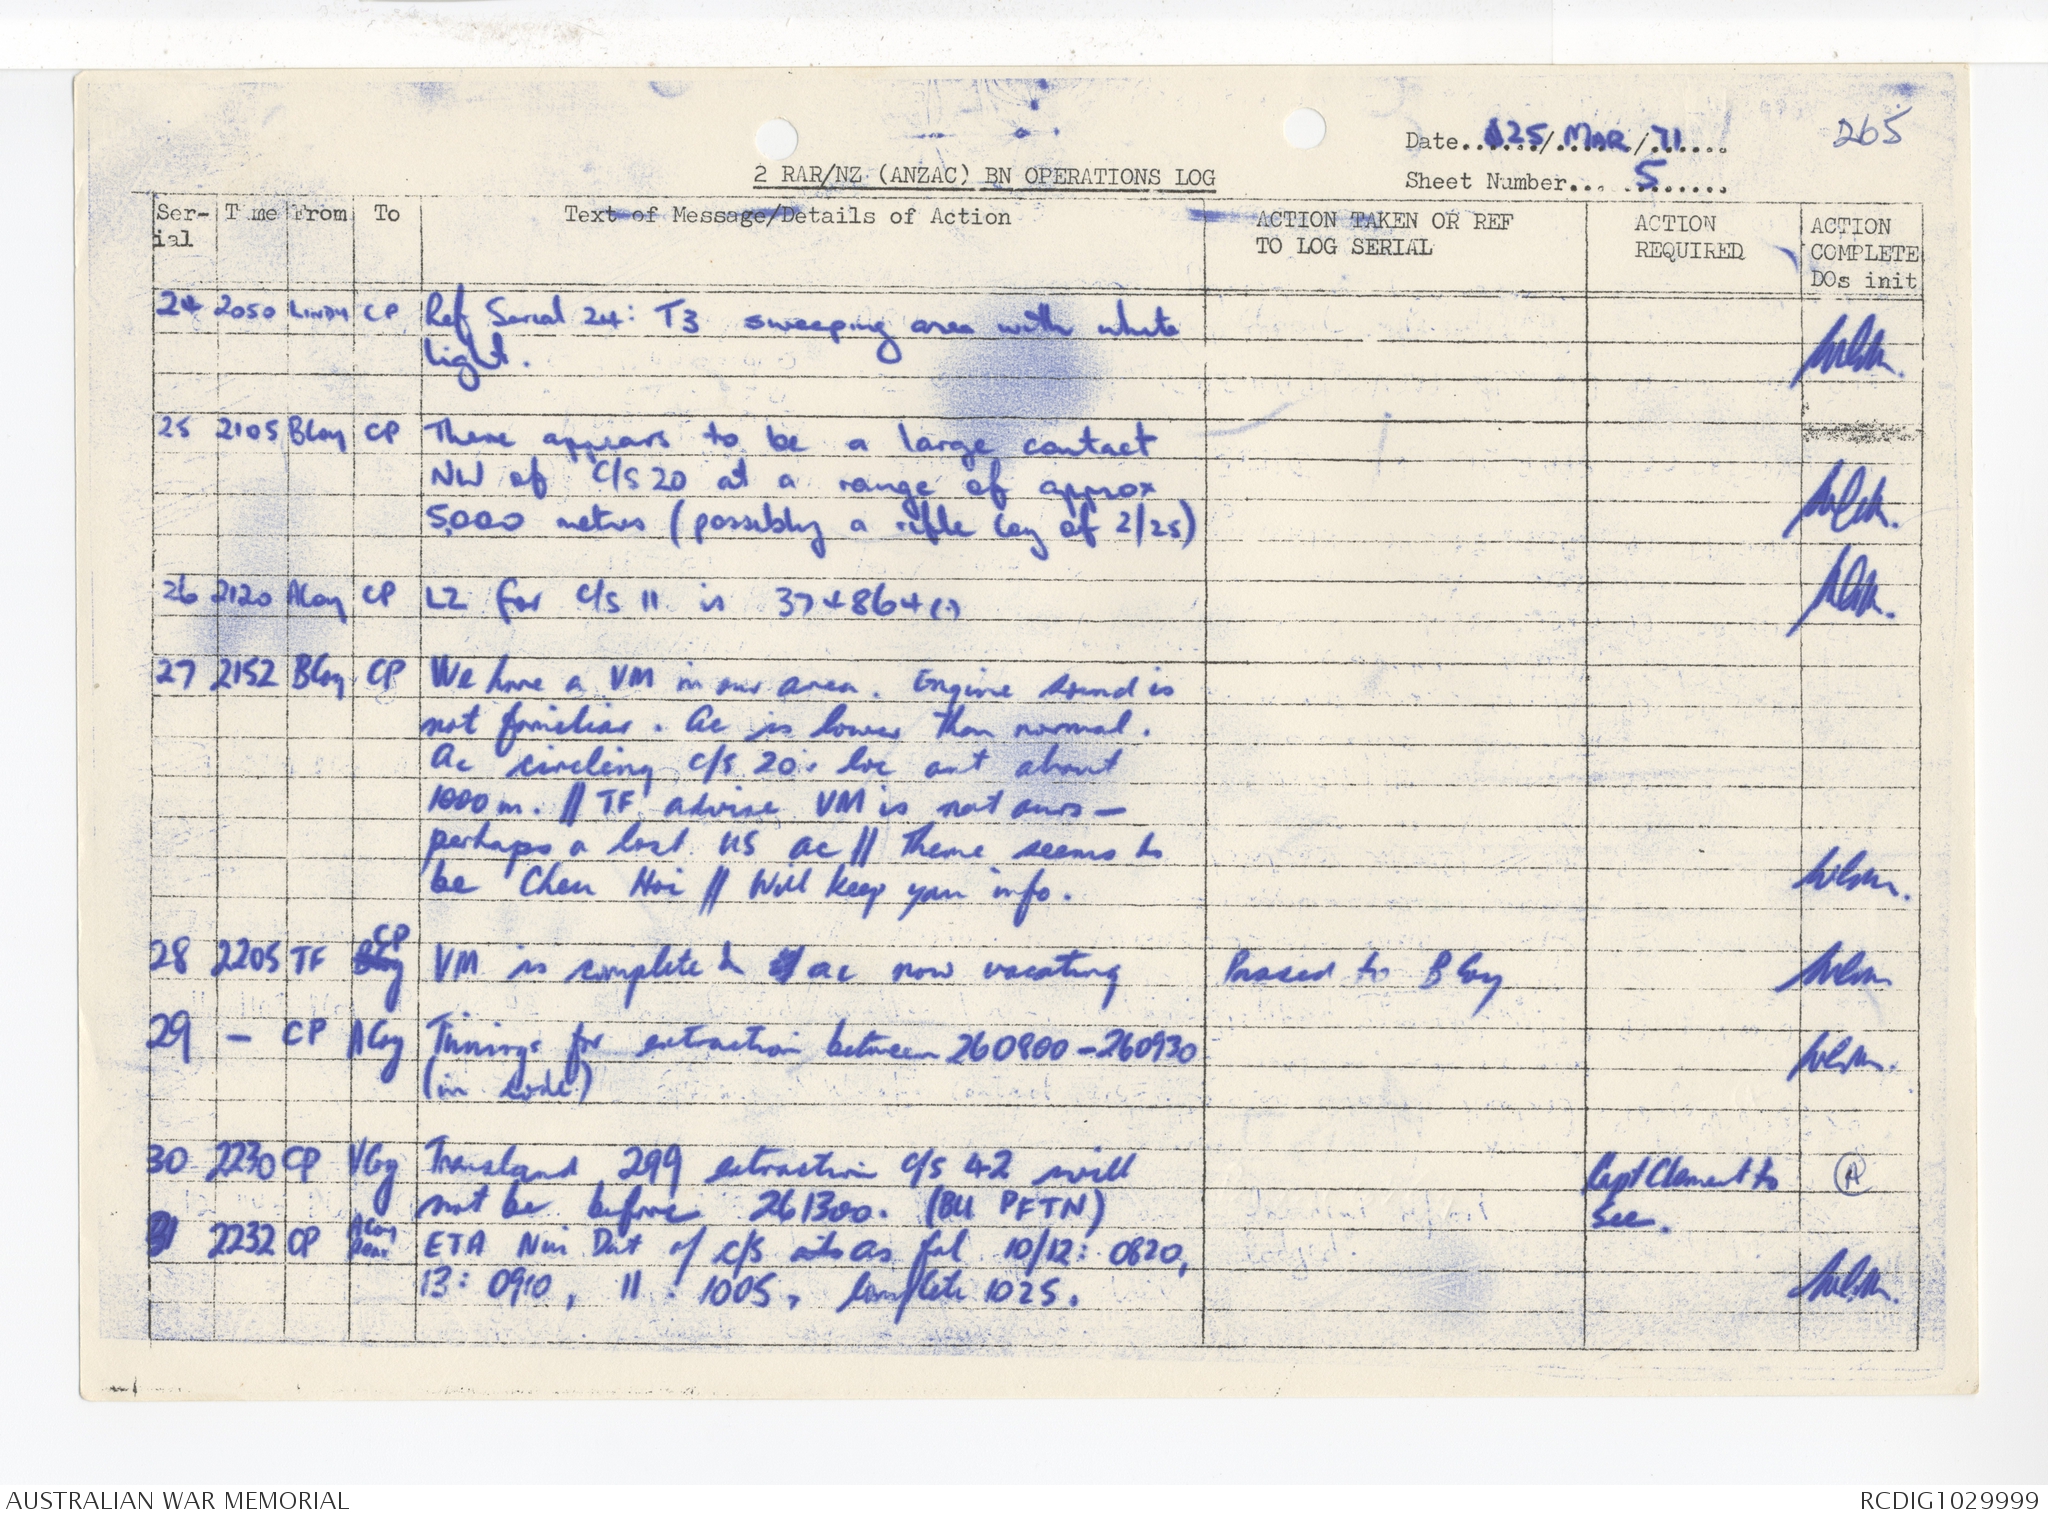 265
Date 25/MAR/71
Sheet Number 5
2 RAR/NZ (ANZAC) BN OPERATIONS LOG
Ser-ial Time From To Text of Message/Details of Action ACTION TAKEN OR REF TO LOG SERIAL ACTION REQUIRED ACTION COMPLETE DOs init
24 2050 LINDY CP Ref Serial 24: T3 sweeping area with white
light.
25 2105 BCoy CP There appears to be a large contact
NW of C/S 20 at a range of approx
5,000 metres (possibly a rifle Coy of 2/25)
26 2120 ACoy CP LZ for C/S 11 is 374864 (.)
27 2152 BCoy CP We have a VM in our area. Engine sound is
not familiar. Ac is lower than normal.
Ac circling C/S 20's loc out about
1000 m. // TF advise VM is not ours -
perhaps a lost US ac // Theme seems to
be Chieu Hoi // Will keep you info.
28 2205 TF CP VM is complete & ac now vacating Passed to B Coy
29 - CP ACoy Timings for extraction between 260800 - 260930
(in code)
30 2230 CP VCoy Transland 299 extraction C/S 42 will Capt Clement to A
not be before 261300. (BU PFTN) See.
31 2232 CP ACoy Rear ETA Nui Dat of C/S as fol 10/12: 0820,
13: 0910, 11: 1005, complete 1025.
AUSTRALIAN WAR MEMORIAL
RCDIG1029999